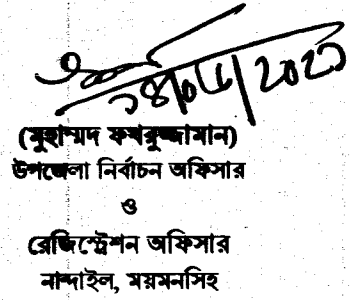 (মুহাম্মদ ফখরুজ্জামান)
উপজেলা নির্বাচন অফিসার
ও
রেজিস্ট্রেশন অফিসার
নান্দাইল, ময়মনসিহ